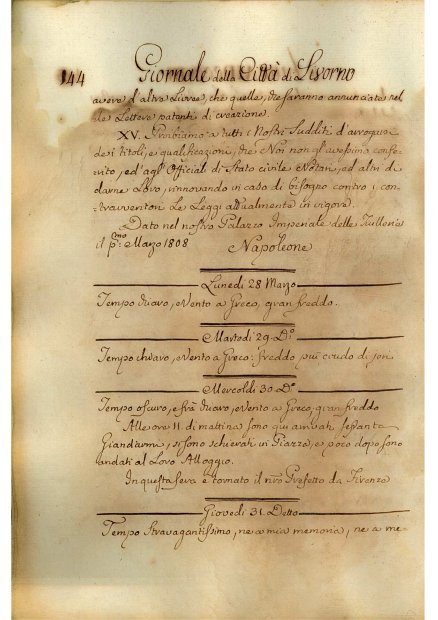 144 Giornale della Città di Livorno
avere d'altra Livree, che quelle, che saranno annunciate nel
le Lettere patenti di creazione.
XV. Proibiamo a tutti i Nostri Sudditi d'arrogar
dei titoli, e qualificazioni, che Noi non gl'avessimo confe
rito, ed agl'Offizial di Stato civile Notari, ed altri di
darne Loro, rinnovando in caso di bisogno contro i con
travventori Le Leggi attualmente in vigore.
Dato nel nostro Palazzo Imperiale delle Tuilerie
il p:mo Marzo 1808 Napoleone
Lunedì 28 Marzo
Tempo chiaro, e Vento a Greco, gran freddo.
Martedì 29. D.o
Tempo chiaro, e Vento a Greco: freddo più crudo di jeri
Mercoldì 30 D.o
Tempo oscuro, e frà chiaro, e Vento a Greco, gran freddo
Alle ore 11 di mattina sono qui arrivati sessanta
Giandarmi, si sono schierati in Piazza, e poco dopo sono
andati al Loro Alloggio.
In questa sera è tornato il nro Prefetto da Firenze
Giovedì 31. Detto
Tempo Stravagantissimo, ne a mia memoria, ne a me-